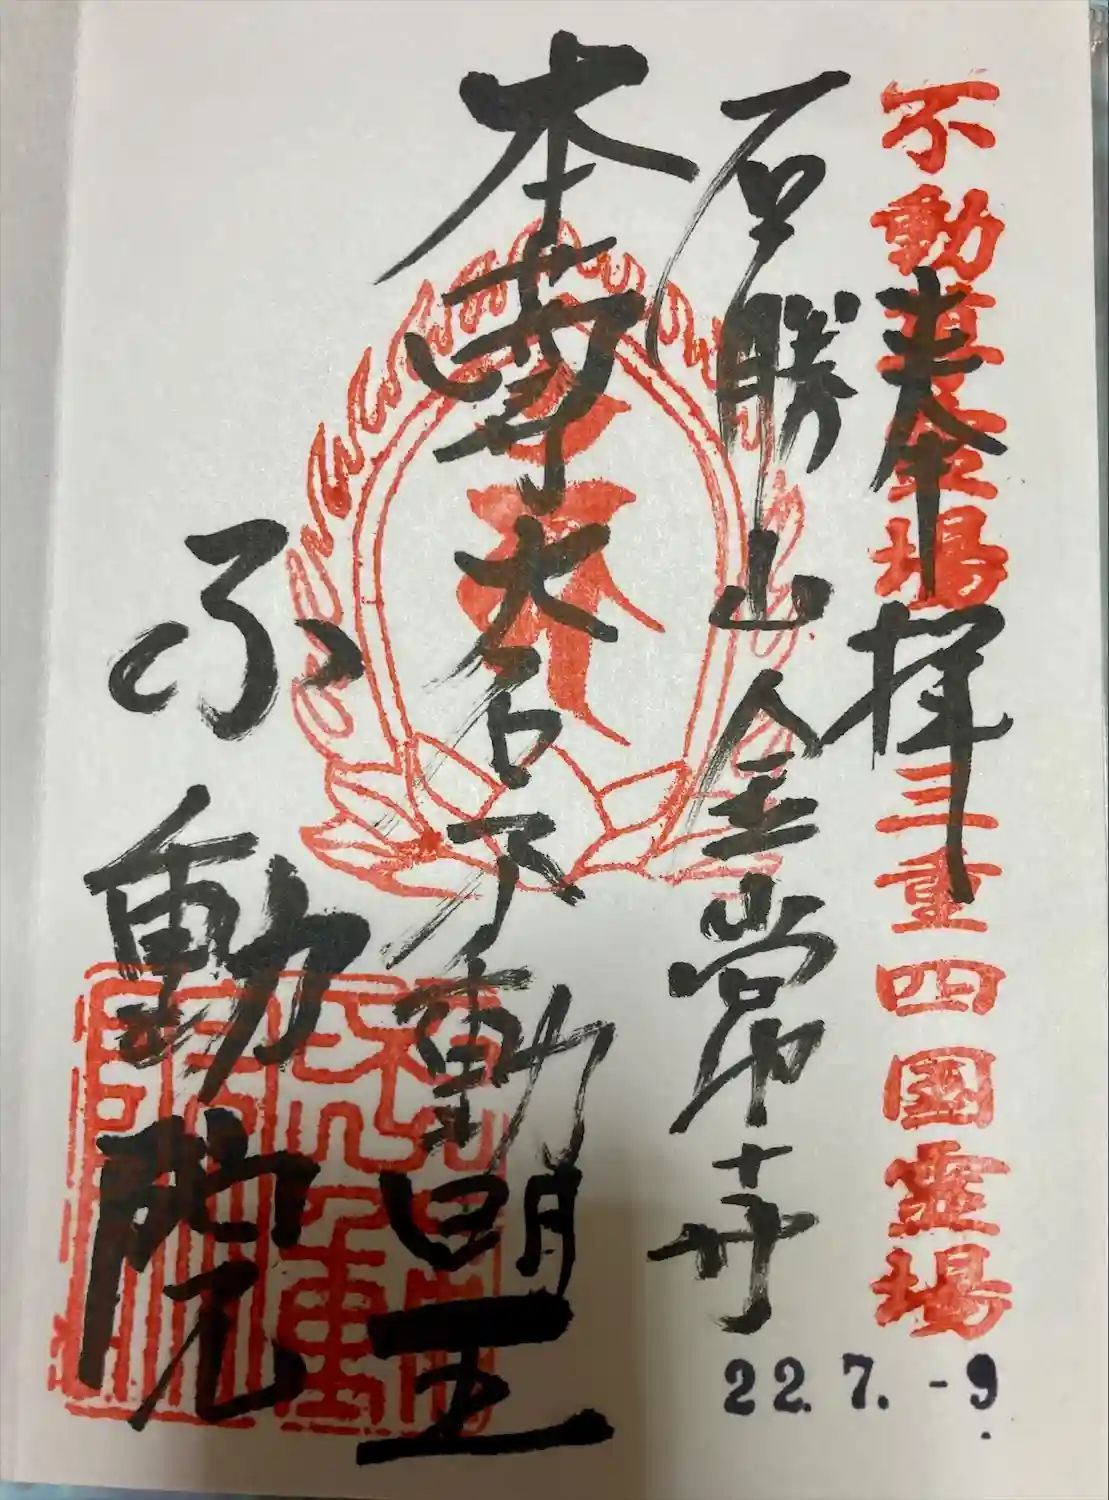 不動尊霊場
三重四國霊場
奉拝
石勝山金常寺
本尊大石不動明王
不動院
22.7.-9